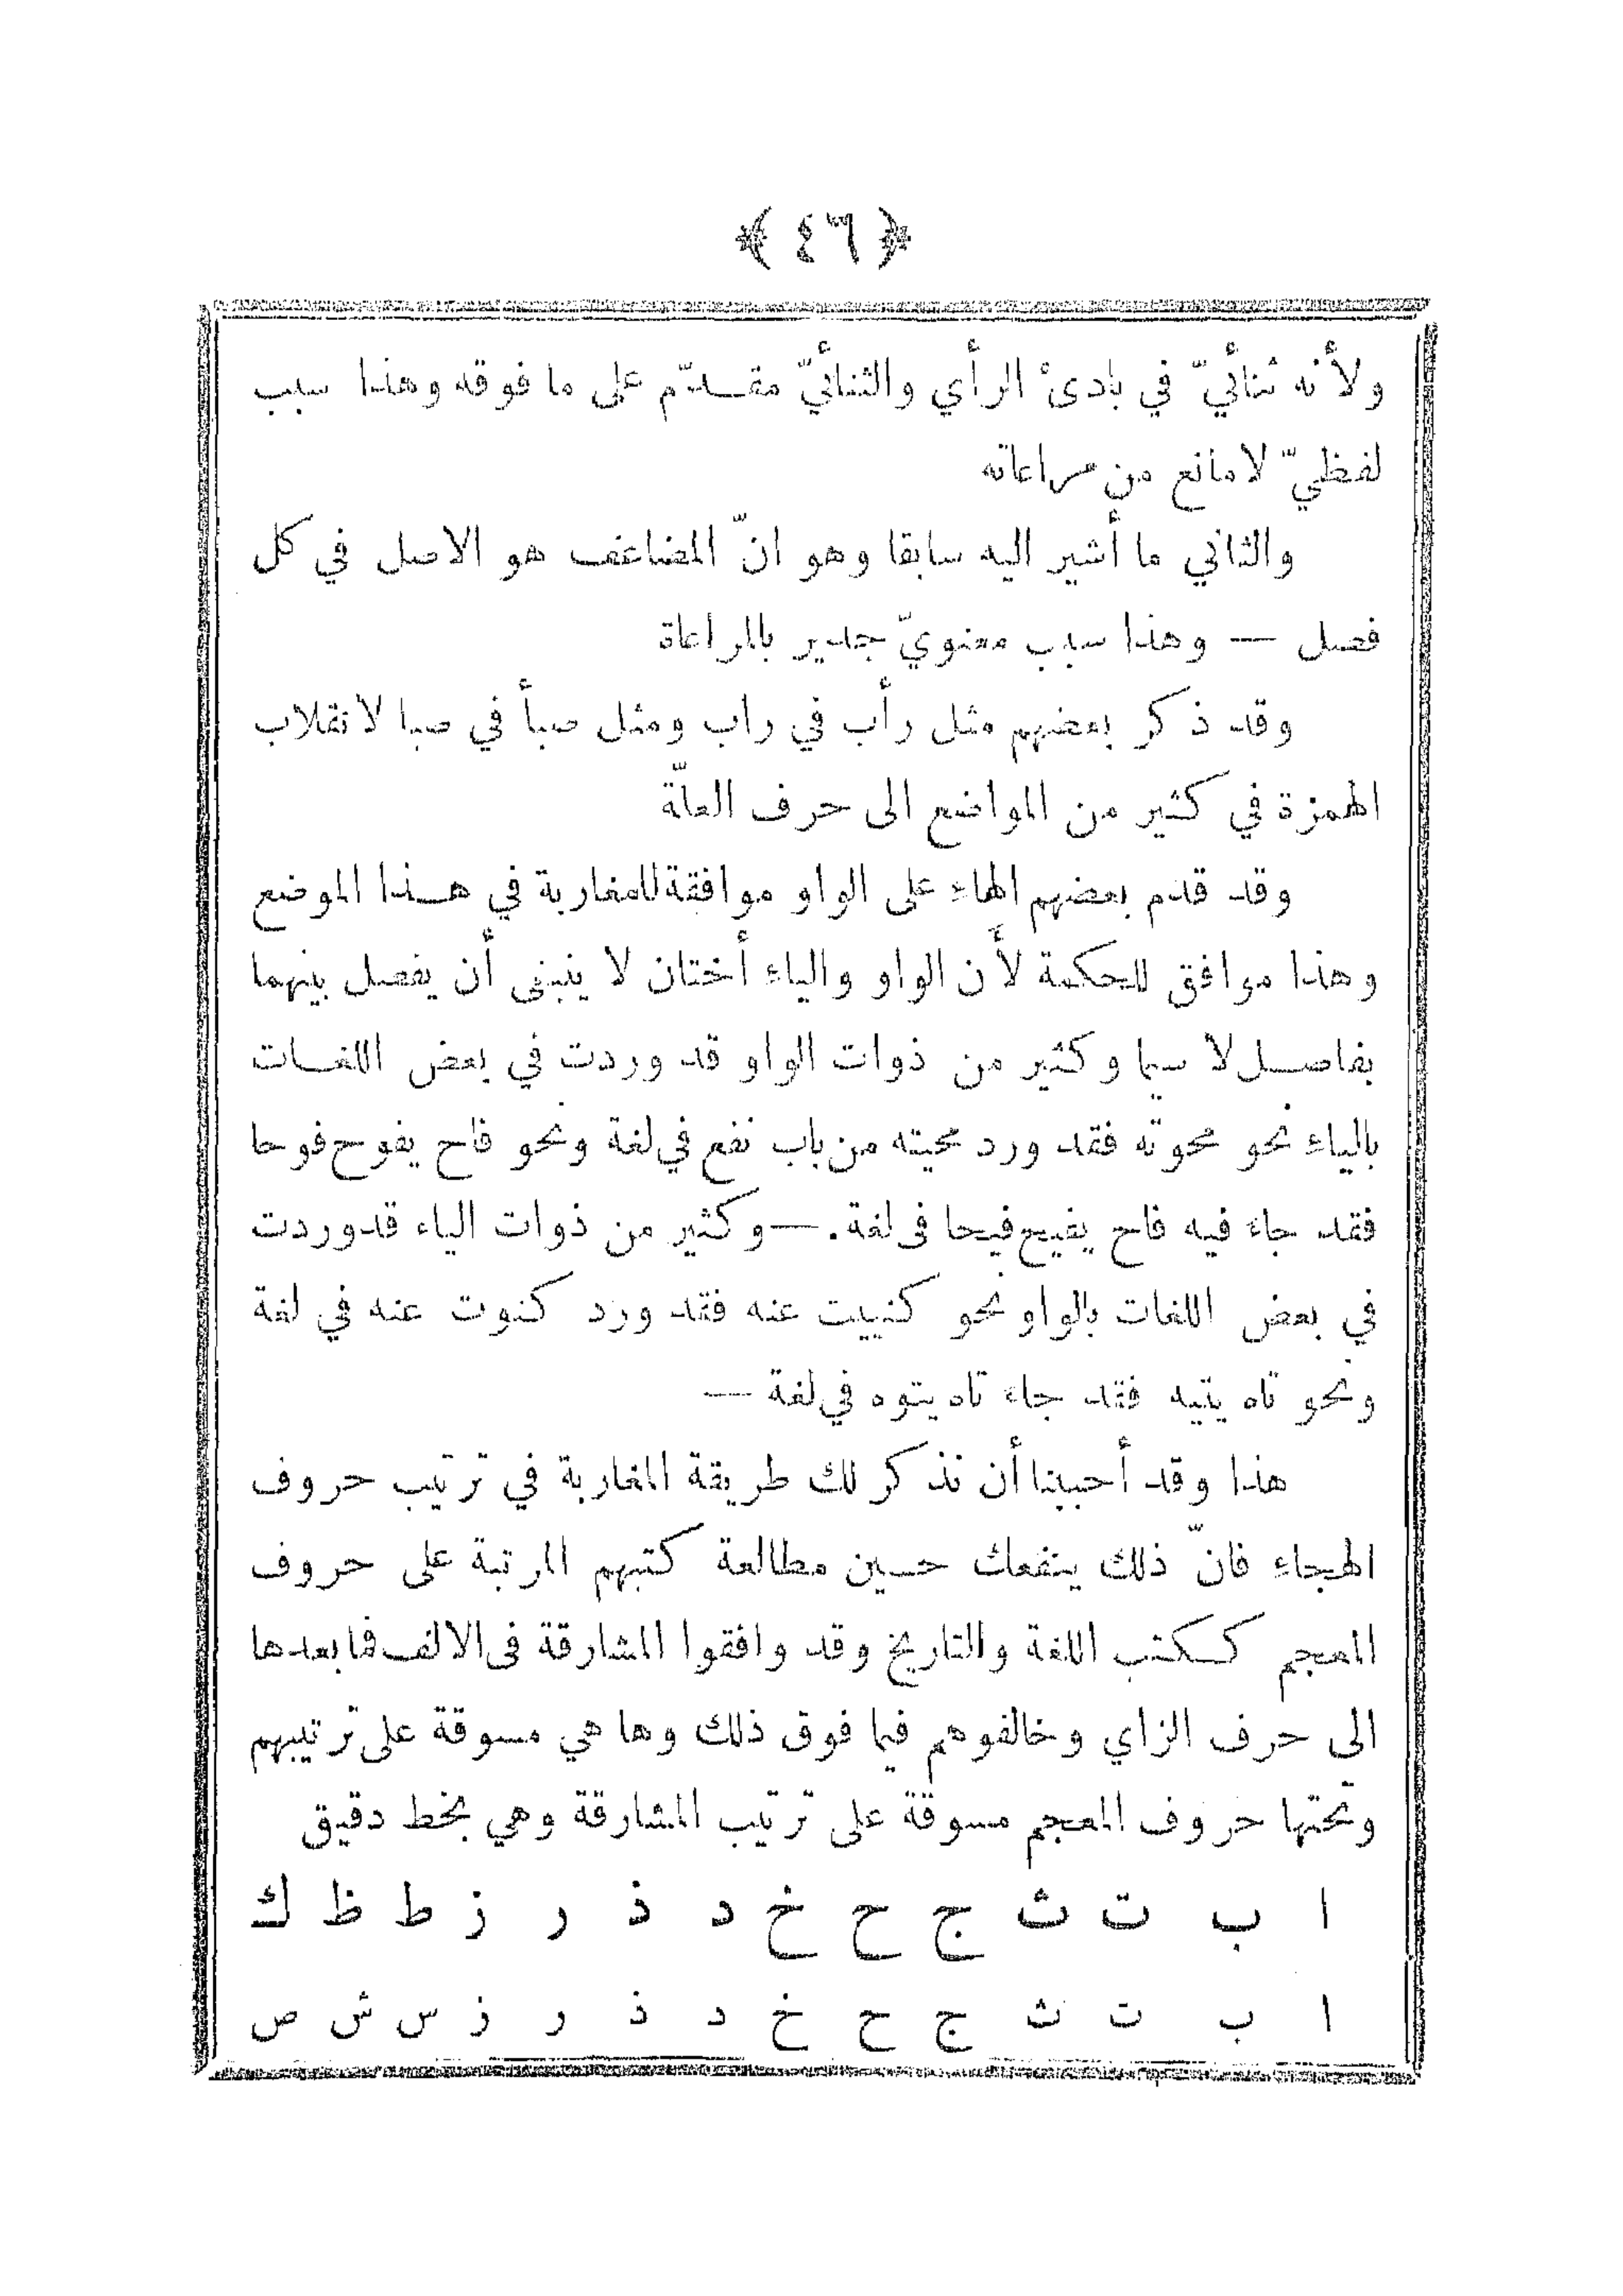 ﴿ ٤٦ ﴾
ولأنه ثنائيّ في بادئ الرأي والثنائيّ مقدّم على ما فوقه وهذا سبب
لفظيّ لامانع من مراعاته
والثاني ما أشير اليه سابقا وهو انّ المضاعف هو الاصل في كل
فصل — وهذا سبب معنويّ جدير بالمراعاة
وقد ذكر بعضهم مثل رأب في راب ومثل صبأ في صبا لانقلاب
الهمزة في كثير من المواضع الى حرف العلّة
وقد قدم بعضهم الهاء على الواو موافقة للمغاربة في هذا الموضع
وهذا موافق للحكمة لأن الواو والياء أختان لا ينبغى أن يفصل بينهما
بفاصل لا سيما وكثير من ذوات الواو قد وردت في بعض اللغات
بالياء نحو محوته فقد ورد محيته من باب نفع في لغة ونحو فاح يفوح فوحا
فقد جاء فيه فاح يفيح فيحا فى لغة . — وكثير من ذوات الياء قد وردت
في بعض اللغات بالواو نحو كنييت عنه فقد ورد كنوت عنه في لغة
ونحو تاه يتيه فقد جاء تاه يتوه في لغة —
هذا وقد أحببنا أن نذكر لك طريقة المغاربة في ترتيب حروف
الهجاء فانّ ذلك ينفعك حسين مطالعة كتبهم المرتبة على حروف
المعجم ككتب اللغة والتاريخ وقد وافقوا المشارقة فى الالف فما بعدها
الى حرف الزاي وخالفوهم فيما فوق ذلك وها هي مسوقة على ترتيبهم
وتحتها حروف المعجم مسوقة على ترتيب المشارقة وهي بخط دقيق
ا ب ت ث ج ح خ د ذ ر ز ط ظ ك
ا ب ت ث ج ح خ د ذ ر ز س ش ص